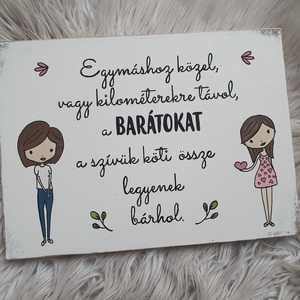 Egymáshoz közel,
vagy kilométerekre távol,
a BARÁTOKAT
a szívük köti össze
legyenek
bárhol.